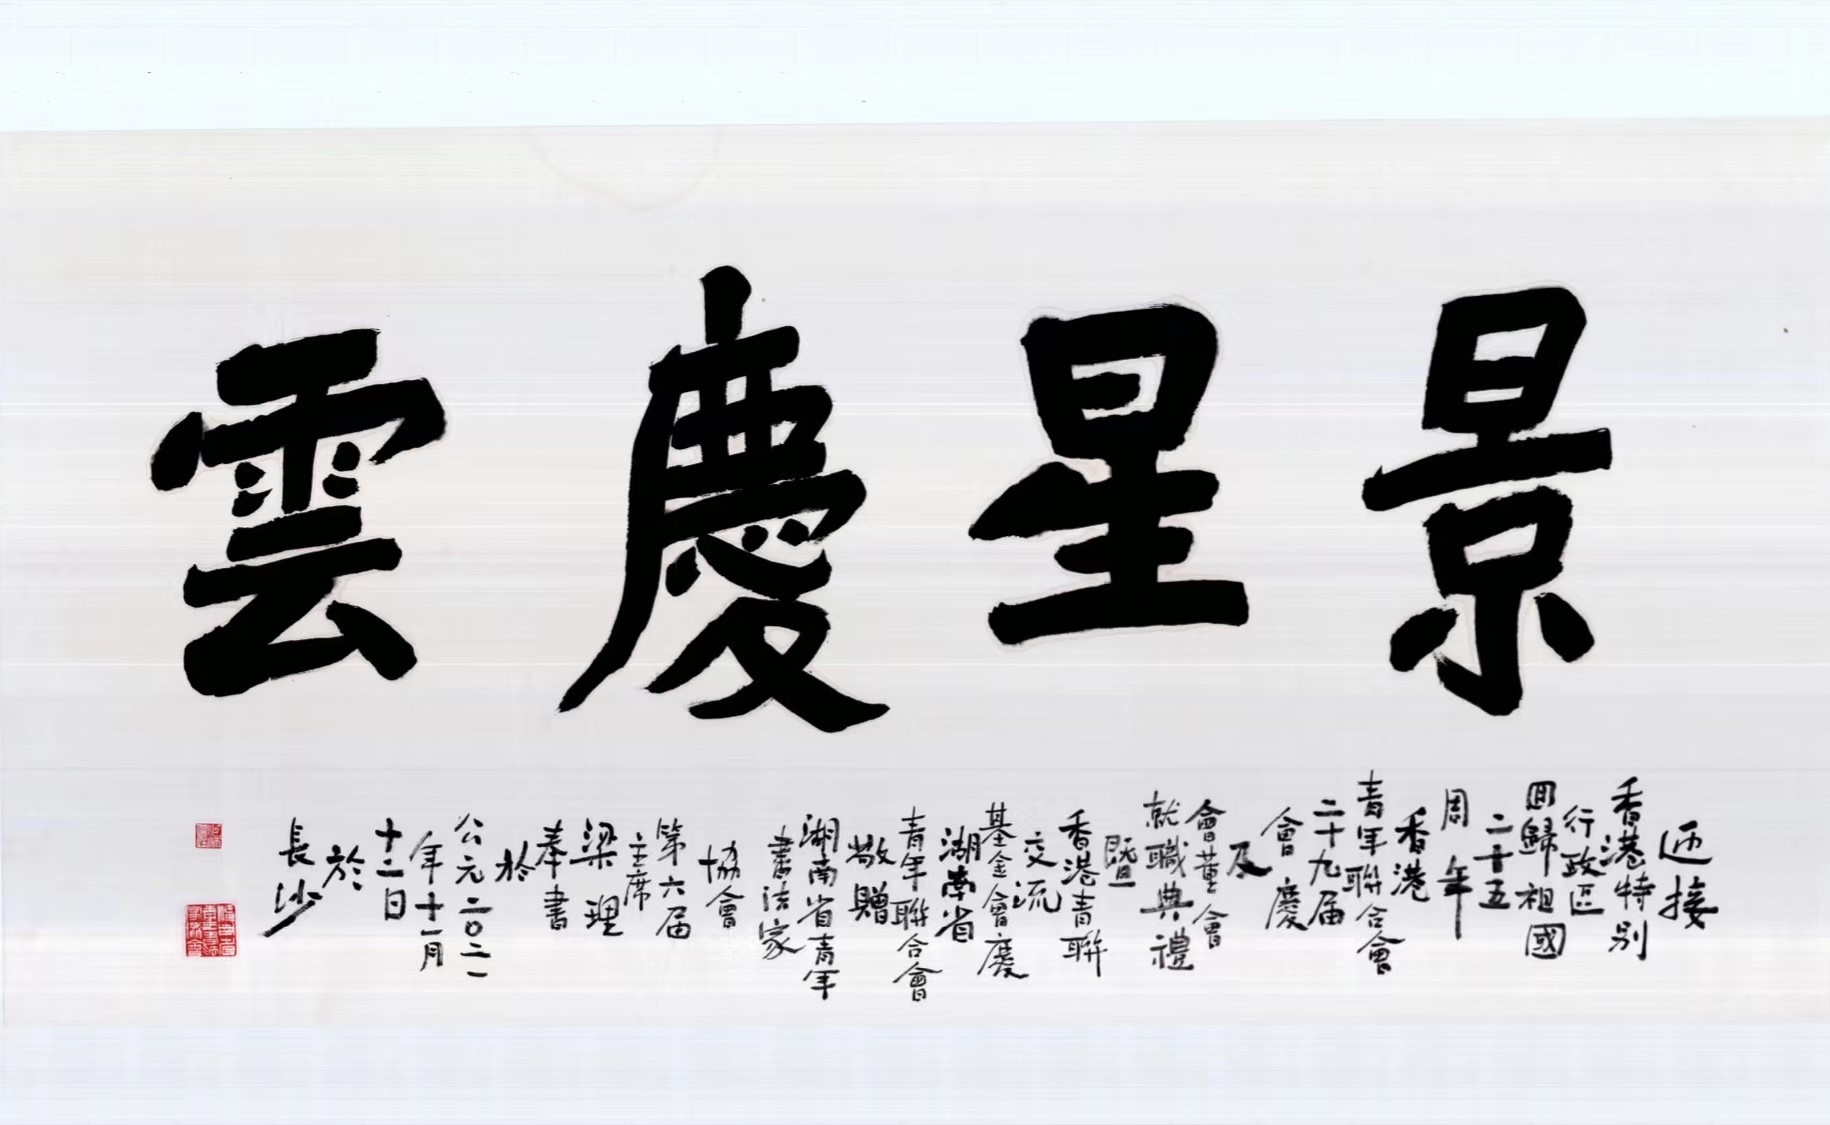 景星慶雲
迎接
香港特别
行政区
回歸祖國
二十五
周年
香港
青年聯合會
二十九届
會慶
及
會董會
就職典禮
暨
香港青聯
交流
基金會慶
湖南省
青年聯合會
敬贈
湖南省青年
書法家
協會
第六届
主席
梁理
奉書
於
公元二〇二一
年十一月
十二日
於
長沙